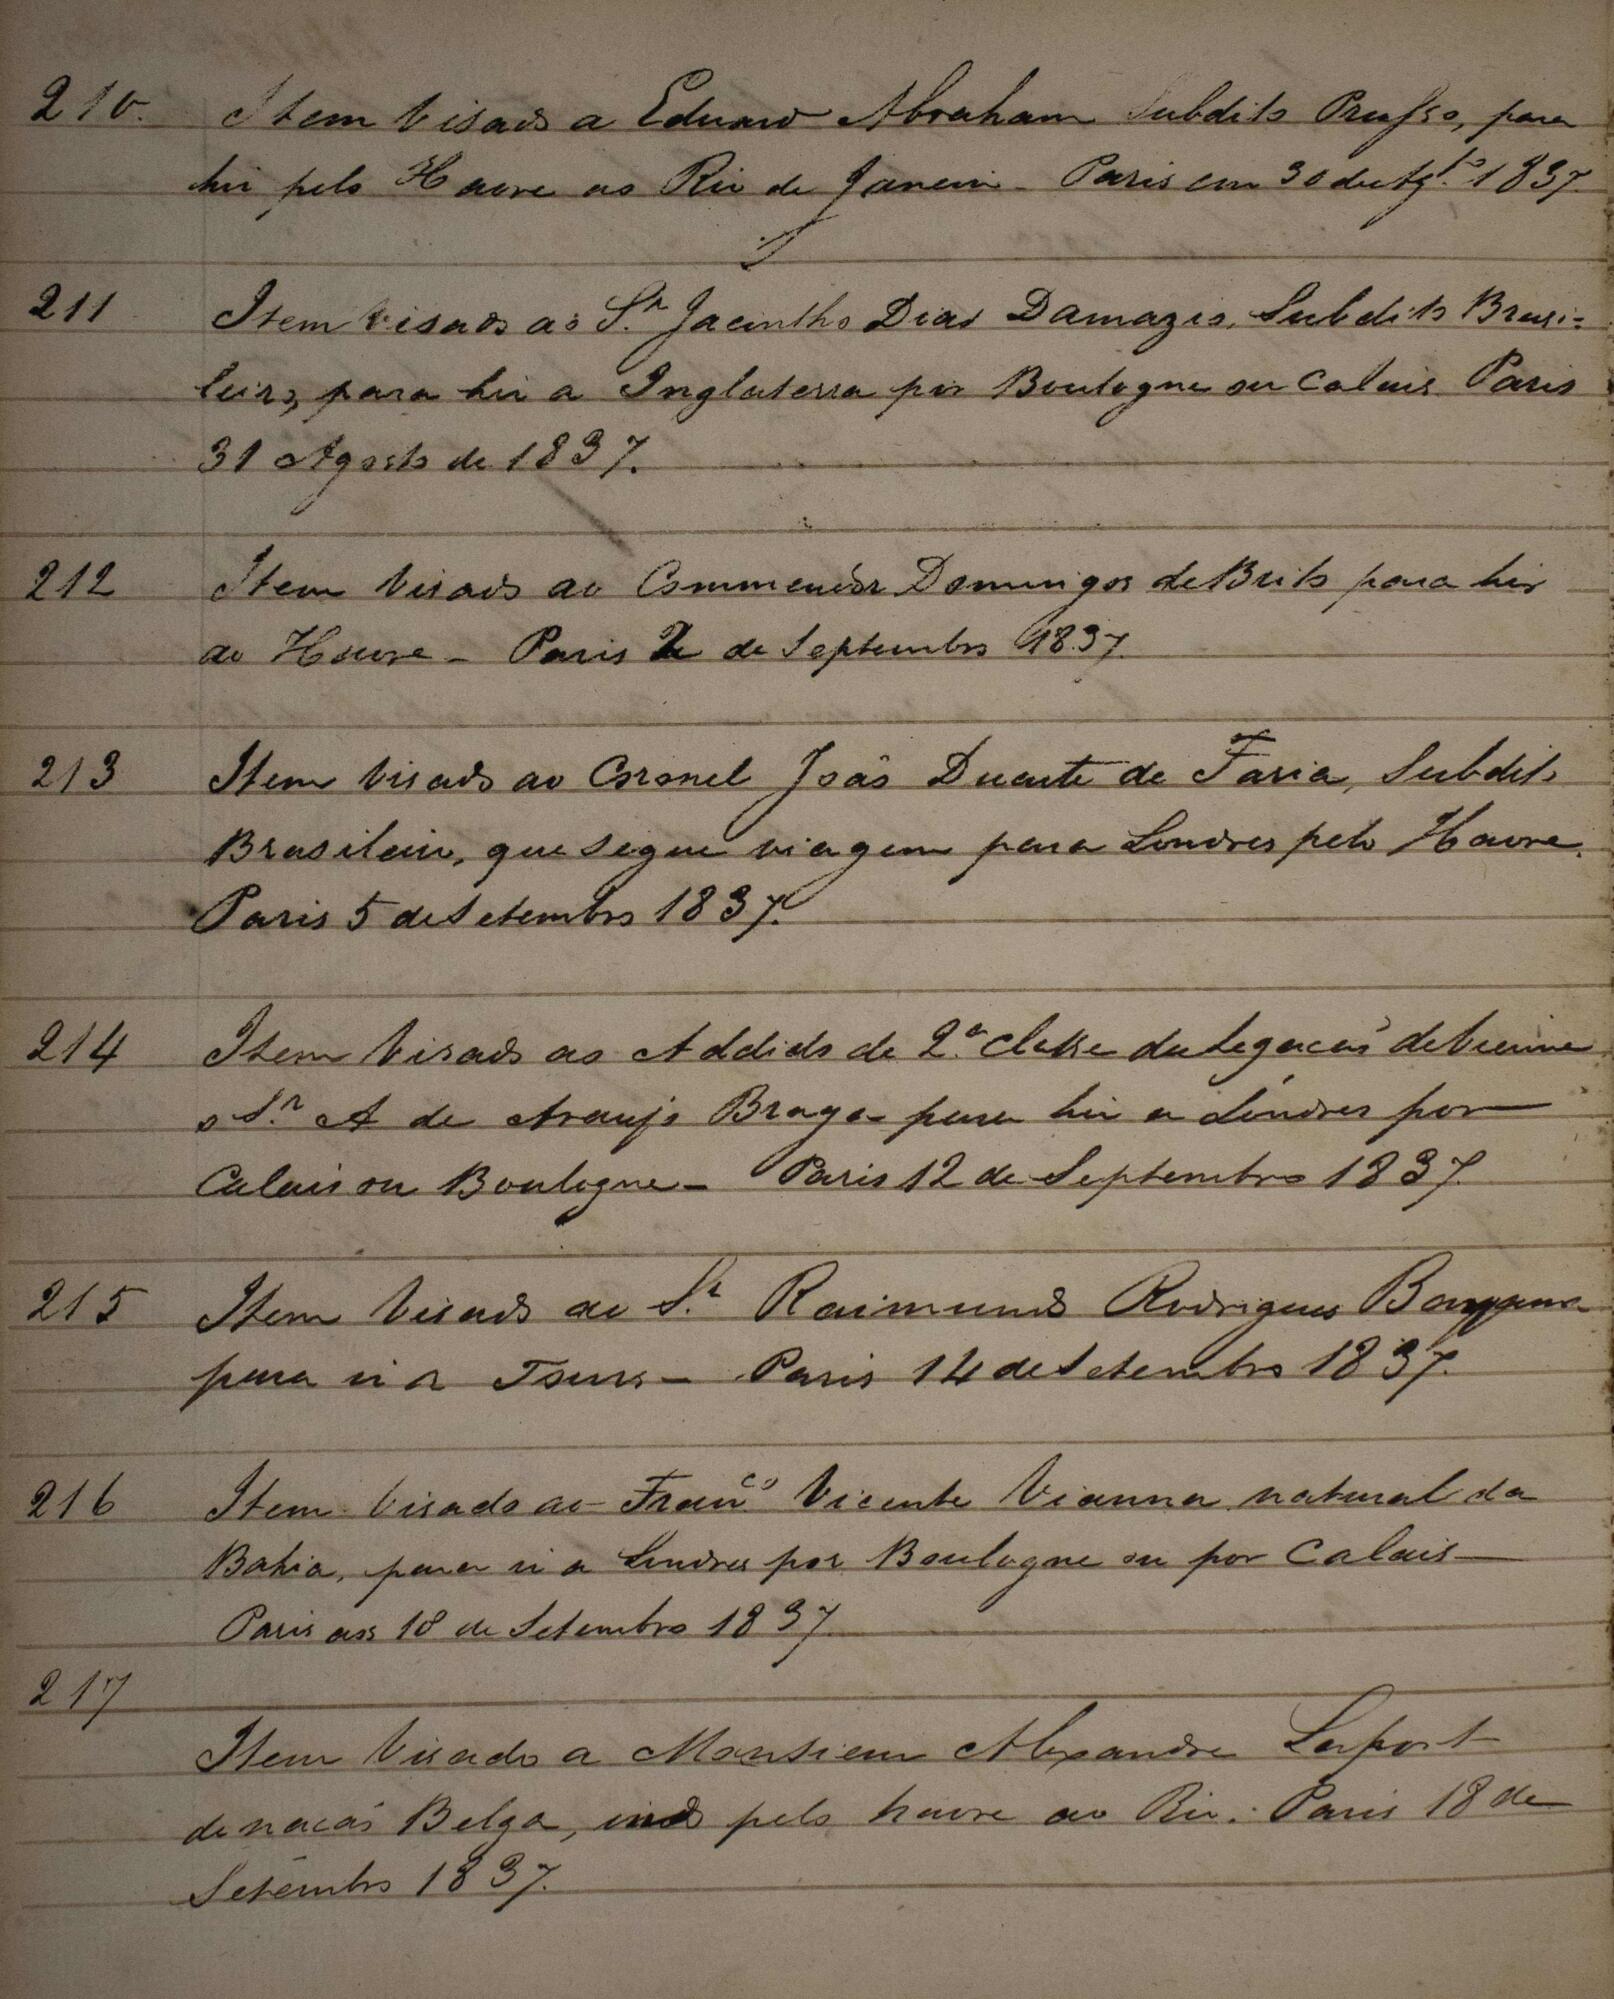 210. Item visado a Eduardo Abraham Subdito Prusso, para
hir pelo Havre ao Rio de Janeiro - Paris em 30 de Ag.to 1837.
211 Item visado ao S.r Jacintho Dias Damazio, Subdito Brasi=
leiro, para hir a Inglaterra por Boulogne ou Calais. Paris
31 Agosto de 1837.
212 Item visado ao Commendor Domingos de Brito para hir
ao Havre - Paris 2 de Septembro 1837.
213 Item visado ao Coronel João Duarte de Faria, Subdito
Brasileiro, que segue viagem para Londres pelo Havre.
Paris 5 de Setembro 1837.
214 Item visado ao Addido de 2.a classe da Legacaõ de Vienna
o S.r A de Araujo Braga para hir a Londres por
Calais ou Boulogne - Paris 12 de Septembro 1837.
215 Item visado ao S.r Raimundo Rodrigues
para ir a Tours - Paris 14 de Setembro 1837.
216 Item visado ao Fran.co Vicente Vianna natural da
Bahia, para ir a Londres por Boulogne ou por Calais -
Paris aos 18 de Setembro 1837
217
Item visado a Monsieur Alexandre Laport
de nacaõ Belga, indo pelo havre ao Rio. Paris 18 de
Setembro 1837.